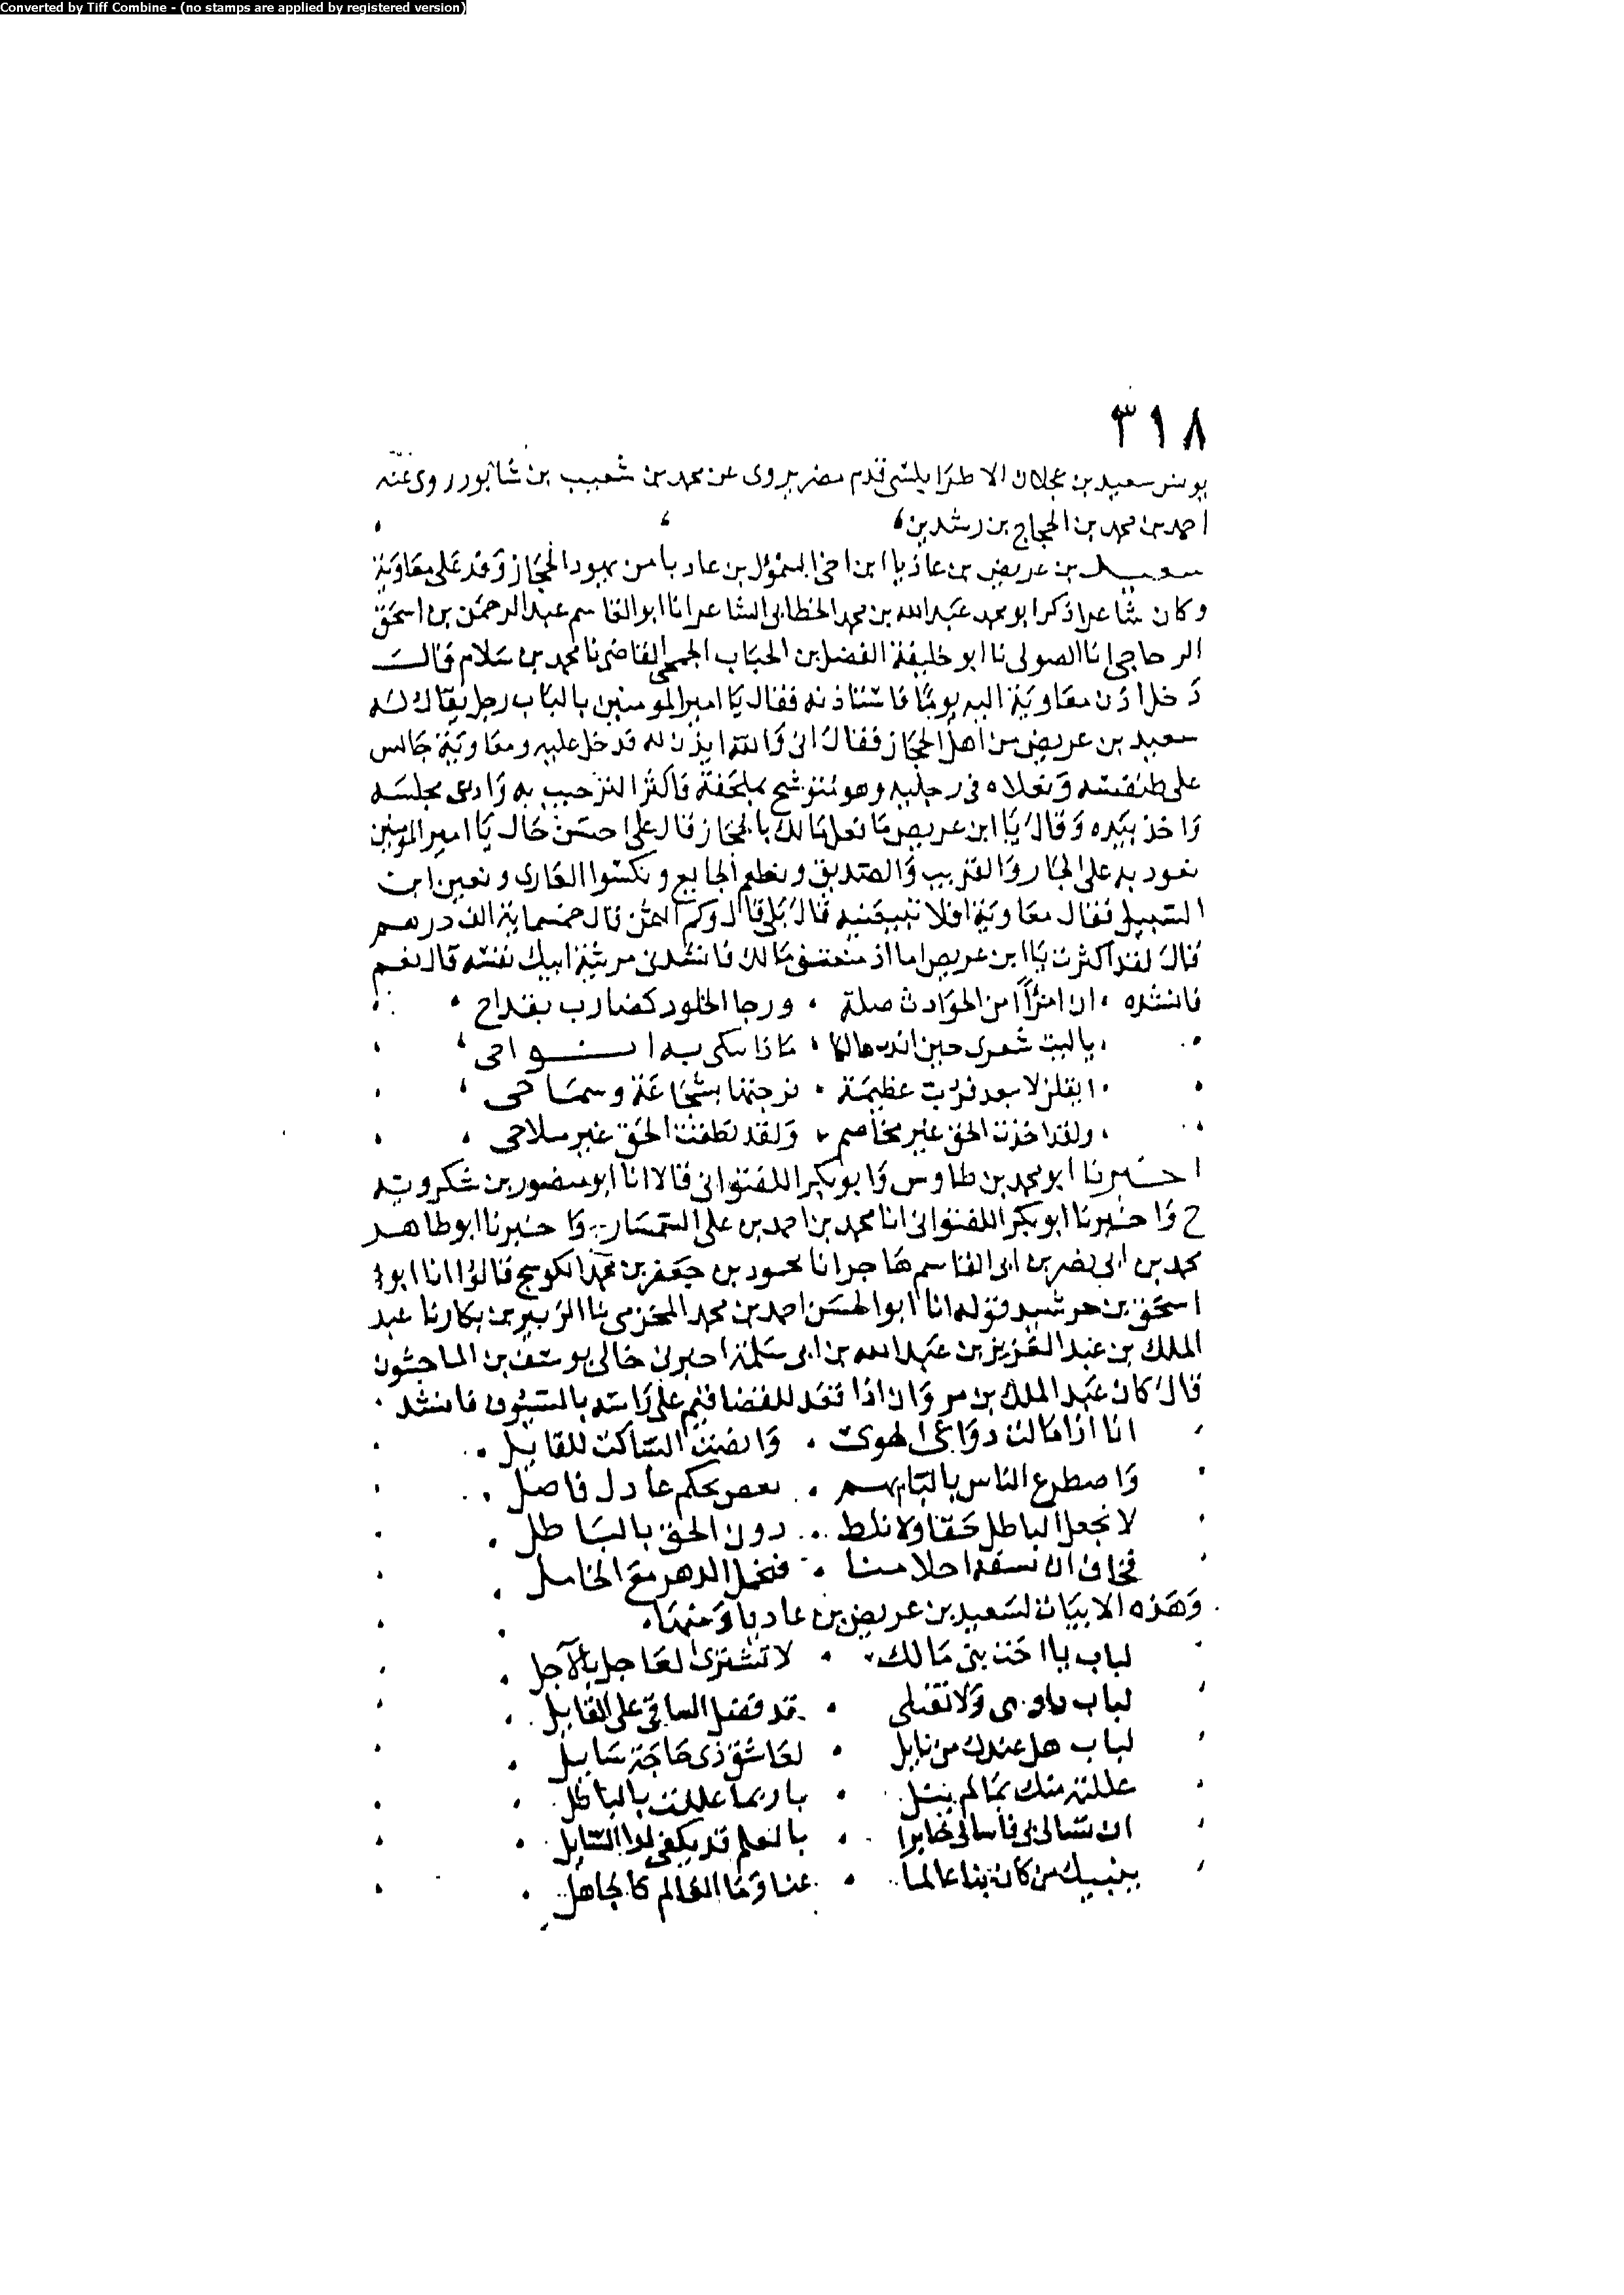 Converted by Tiff Combine - (no stamps are applied by registered version)
٣١٨
يونس سعيد بن عجلان الاطرابلسي قدم مصر يروى عن محمد بن شعيب بن شابور روى عنه
احمد بن محمد بن الحجاج بن رشدين
سعيد بن عريض بن عاديا ابن اخى السمؤل بن عاديا من يهود الحجاز وفد على معاوية
وكان شاعرا ذكر ابو محمد عبد الله بن محمد الخطابى الشاعر انا ابو القاسم عبد الرحمن بن اسحق
الزجاجى انا الصولى نا ابو خليفة الفضل بن الحباب الجمحى القاضى نا محمد بن سلام قال
دخل اذن معاوية اليه يوما فاستاذنه فقال يا امير المومنين بالباب رجل يقال له
سعيد بن عريض من اهل الحجاز فقال ائذن له فدخل عليه ومعاوية جالس
على طنفسه ونعلاه فى رجليه وهو متوشح بملحفة فاكثر الترحيب به وادنى مجلسه
واخذ بيده وقال يا ابن عريض ما فعل مالك بالحجاز قال على احسن حال يا امير المومنين
نعود به على الجار والقريب والصديق ونطعم الجايع ونكسوا العارى ونعين ابن
السبيل فقال معاوية افلا تبيعنيه قال بلى قال وكم الثمن قال خمسماية الف درهم
قال لقد اكثرت يا ابن عريض اما اذ منعتنى مالك فانشدنى مرثية ابيك نفسه قال نعم
فانشده ان امرأ امن الحوادث ضلة ورجا الخلود كضارب بقداح
ياليت شعرى حين اندب هالكا ماذا تبكى به انواحى
ايقلن لا تبعد فرب عظيمة فرجتها بشجاعة وسماحى
ولقد اخذت الحق غير مخاصم ولقد الحق غير سلاحى
اخبرنا ابو محمد بن طاوس وابو بكر اللفتوانى قالا انا ابو منصور بن شكرويه
ح واخبرنا ابو بكر اللفتوانى انا محمد بن احمد بن على السمسار واخبرنا ابو طاهر
محمد بن ابى نصر بن ابى القاسم هاجر انا محمود بن جعفر بن محمد الكوسج قالوا انا ابو
اسحق بن خرشيد قوله انا ابو الحسن احمد بن محمد المخزمى نا الزبير بن بكار نا عبد
الملك بن عبد العزيز بن عبد الله بن ابى سلمة اخبرنى خالى يوسف بن الماجشون
قال كان عبد الملك بن مروان اذا قعد للقضا قيم على راسه بالسيوف فانشد
انا اذا مالت دواعى الهوى وانصت الساكت للقايل
واصطرع الناس بالبابهم نقضى بحكم عادل فاصل
لا نجعل الباطل حقا ولا نلط دون الحق بالباطل
نخاف ان تسفه احلامنا فنخمل الدهر مع الخامل
وهذه الابيات لسعيد بن عريض بن عاديا ومنها
لباب يا اخت بنى مالك لا تشترى العاجل بالآجل
لباب داوينى ولا تقتلى قد فضل الشافى على القاتل
لباب هل عندك من نايل لعاشق ذى حاجة سايل
عللته منك بما لم ينل ياربما عللت بالباطل
ان تسالى بى فاسالى خابرا بالعلم قد يكفى لدا السايل
ينبيك من كان بنا عالما عنا وما العالم كالجاهل